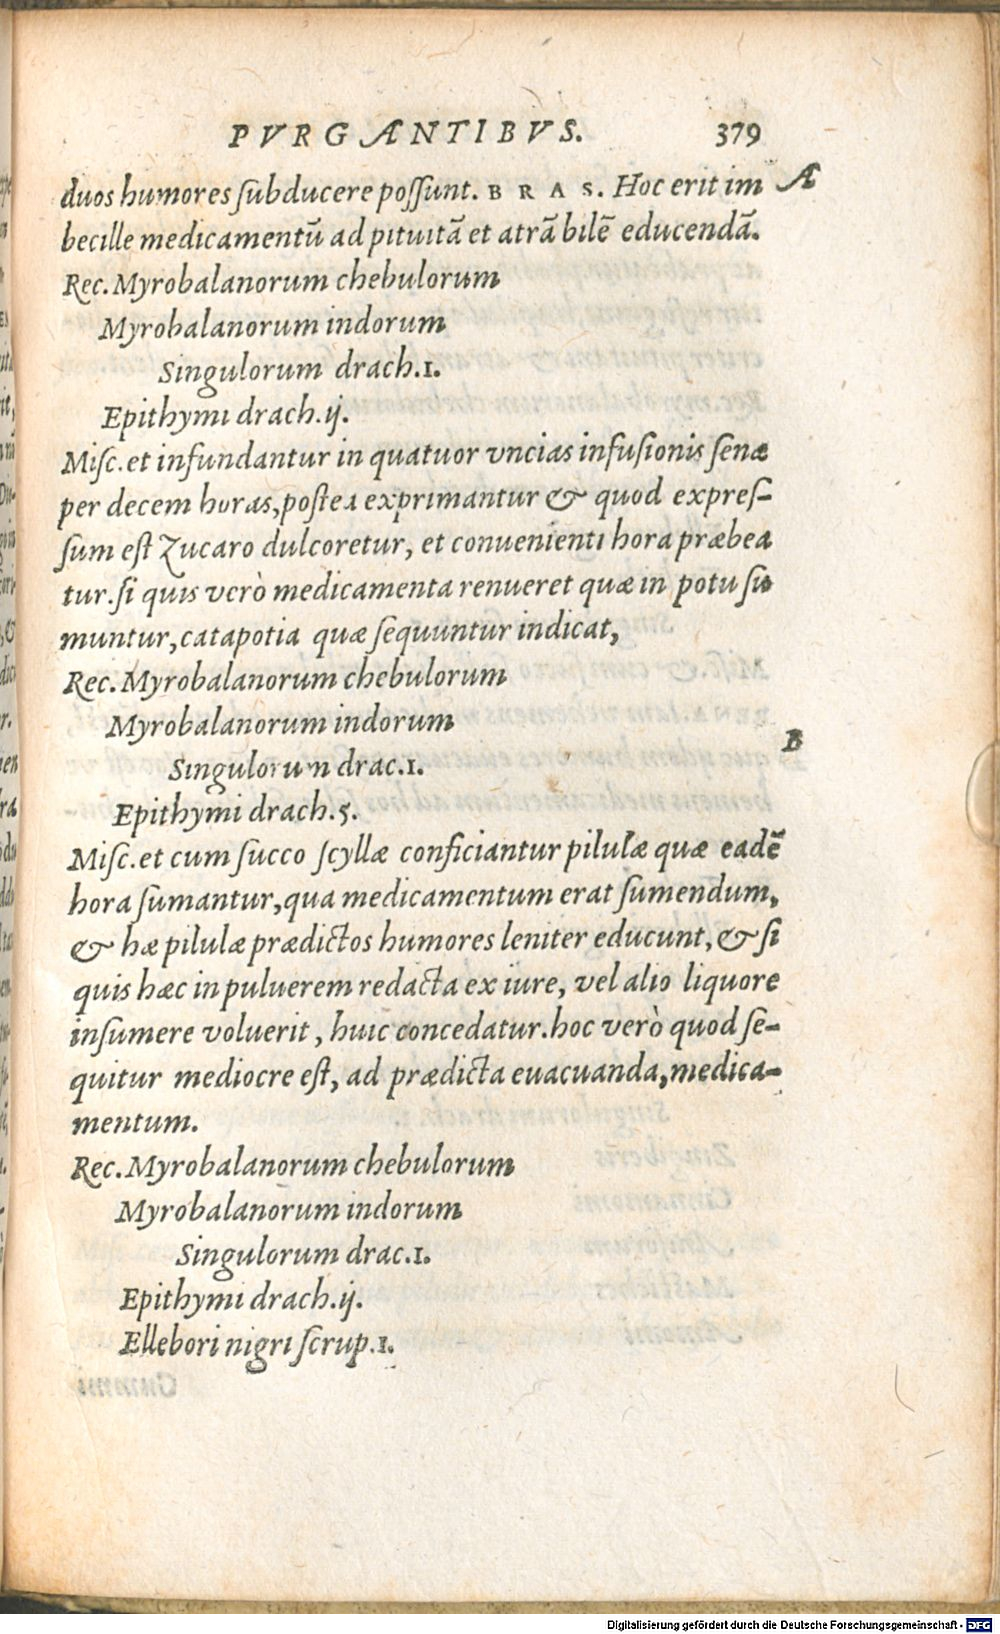 PVRGANTIBVS. 379
duos humores ſubducere poſſunt. BRAS. Hoc erit im A
becille medicamentū ad pituitā et atrā bilē educendā.
Rec. Myrobalanorum chebulorum
Myrobalanorum indorum
Singulorum drach.1.
Epithymi drach.ij.
Miſc. et infundantur in quatuor vncias infuſionis ſenæ
per decem horas, poſtea exprimantur & quod expreſ-
ſum eſt Zucaro dulcoretur, et conuenienti hora præbea
tur. ſi quis verò medicamenta renueret quæ in potu ſu
muntur, catapotia quæ ſequuntur indicat,
Rec. Myrobalanorum chebulorum
Myrobalanorum indorum
B
Singulorum drac.1.
Epithymi drach.5.
Miſc. et cum ſucco ſcyllæ conficiantur pilulæ quæ eadē
hora ſumantur, qua medicamentum erat ſumendum,
& hæ pilulæ prædictos humores leniter educunt, & ſi
quis hæc in puluerem redacta ex iure, vel alio liquore
inſumere voluerit, huic concedatur. hoc verò quod ſe-
quitur mediocre eſt, ad prædicta euacuanda, medica-
mentum.
Rec. Myrobalanorum chebulorum
Myrobalanorum indorum
Singulorum drac.1.
Epithymi drach.ij.
Ellebori nigri ſcrup.1.
Digitalisierung gefördert durch die Deutsche Forschungsgemeinschaft - DFG